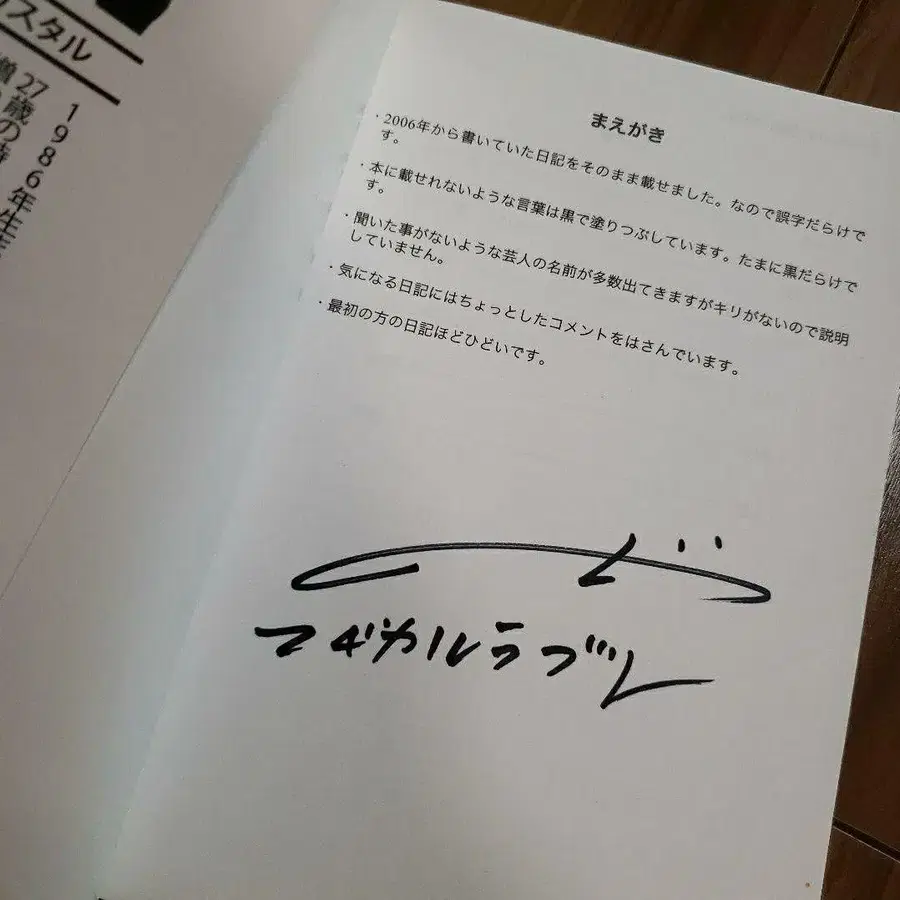 スタル
1986年生
27歳の時
まえがき
・2006年から書いていた日記をそのまま載せました。なので誤字だらけで
す。
・本に載せれないような言葉は黒で塗りつぶしています。たまに黒だらけで
す。
・聞いた事がないような芸人の名前が多数出てきますがキリがないので説明
していません。
・気になる日記にはちょっとしたコメントをはさんでいます。
・最初の方の日記ほどひどいです。
マヂカルラブリー